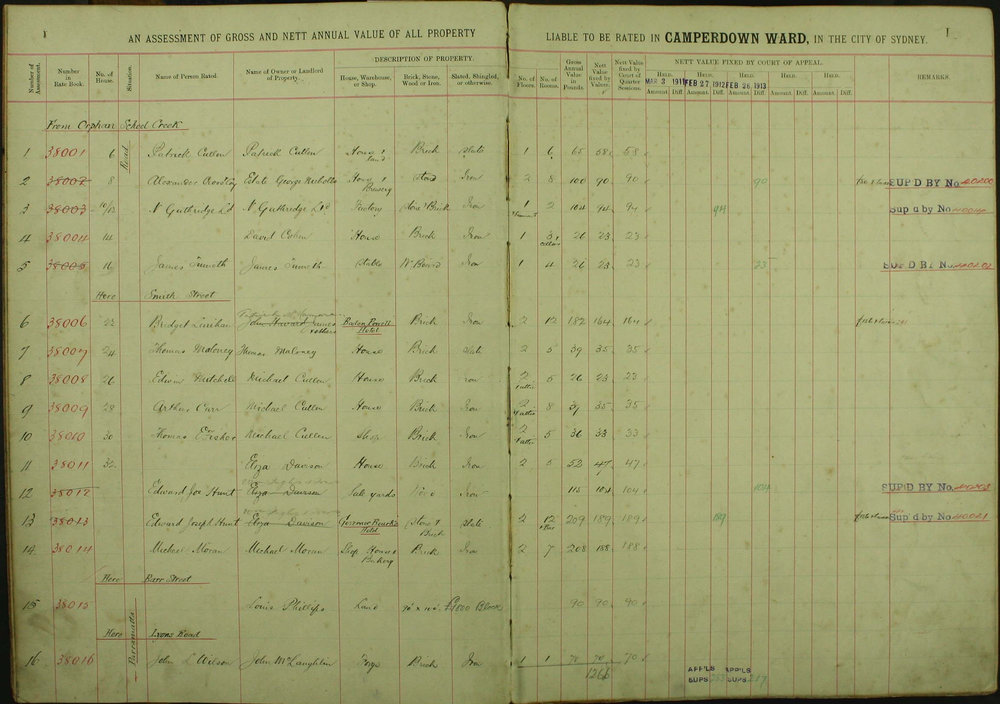 AN ASSESSMENT OF GROSS AND NETT ANNUAL VALUE OF ALL PROPERTY LIABLE TO BE RATED IN CAMPERDOWN WARD, IN THE CITY OF SYDNEY.
Number of Assessment. Number in Rate Book. No. of House. Situation. Name of Person Rated. Name of Owner or Landlord of Property. DESCRIPTION OF PROPERTY. House, Warehouse, or Shop. Brick, Stone, Wood or Iron. Slated, Shingled, or otherwise. No. of Floors. No. of Rooms. Gross Annual Value in Pounds. Nett Value fixed by Valuer. Nett Value fixed by Court of Quarter Sessions. NETT VALUE FIXED BY COURT OF APPEAL. REMARKS.
HELD. HELD. HELD. HELD. HELD.
MAR 3 1911 FEB 27 1912 FEB 26 1913
Amount Diff. Amount Diff. Amount Diff. Amount Diff. Amount Diff.
From Orphan School Creek
1 38001 6 Road Patrick Cullen Patrick Cullen House & Land Brick Slate 1 6 65 58 58
2 38002 8 Alexander Estate George Nicholls House & Iron 2 8 100 90 90 90 SUP'D BY No.
3 38003 10/12 N Guthridge Ld N Guthridge Ld Stone & Brick Iron 1 2 104 94 94 94 Sup'd by No.
4 38004 14 David Cohen House Brick Iron 1 3 26 23 23
5 38005 16 James James Stable W Board Iron 1 4 26 23 23 23 SUP'D BY No.
Here Smith Street
6 38006 22 Bridget Linihan John Howard James & others Baden Powell Hotel Brick Iron 2 12 182 164 164
7 38007 24 Thomas Maloney Thomas Maloney House Brick Slate 2 5 39 35 35
8 38008 26 Edwin Mitchell Michael Cullen House Brick Iron 2 5 26 23 23
9 38009 28 Arthur Carr Michael Cullen House Brick Iron 2 8 39 35 35
10 38010 30 Thomas Fisher Michael Cullen Shop Brick Iron 2 5 36 33 33
11 38011 32 Eliza Davison House Brick Iron 2 52 47 47
12 38012 Edward Jos Hunt Eliza Davison Sale yards Iron 115 104 104 104 SUP'D BY No.
13 38013 Edward Joseph Hunt Eliza Davison Hotel Stone & Brick Slate 2 12 209 189 189 189 Sup'd by No. 40021
14 38014 Michael Moran Michael Moran Shop House & Bakery Brick Iron 2 7 208 188 188
Here Barr Street
15 38015 Louis Phillips Land £1800 Block 90 90 90
Here Lyons Road
Parramatta
16 38016 John L Wilson John McLaughlin Forge Brick Iron 1 1 78 70 70
1266
APP'LS APP'LS
SUPS SUPS 217